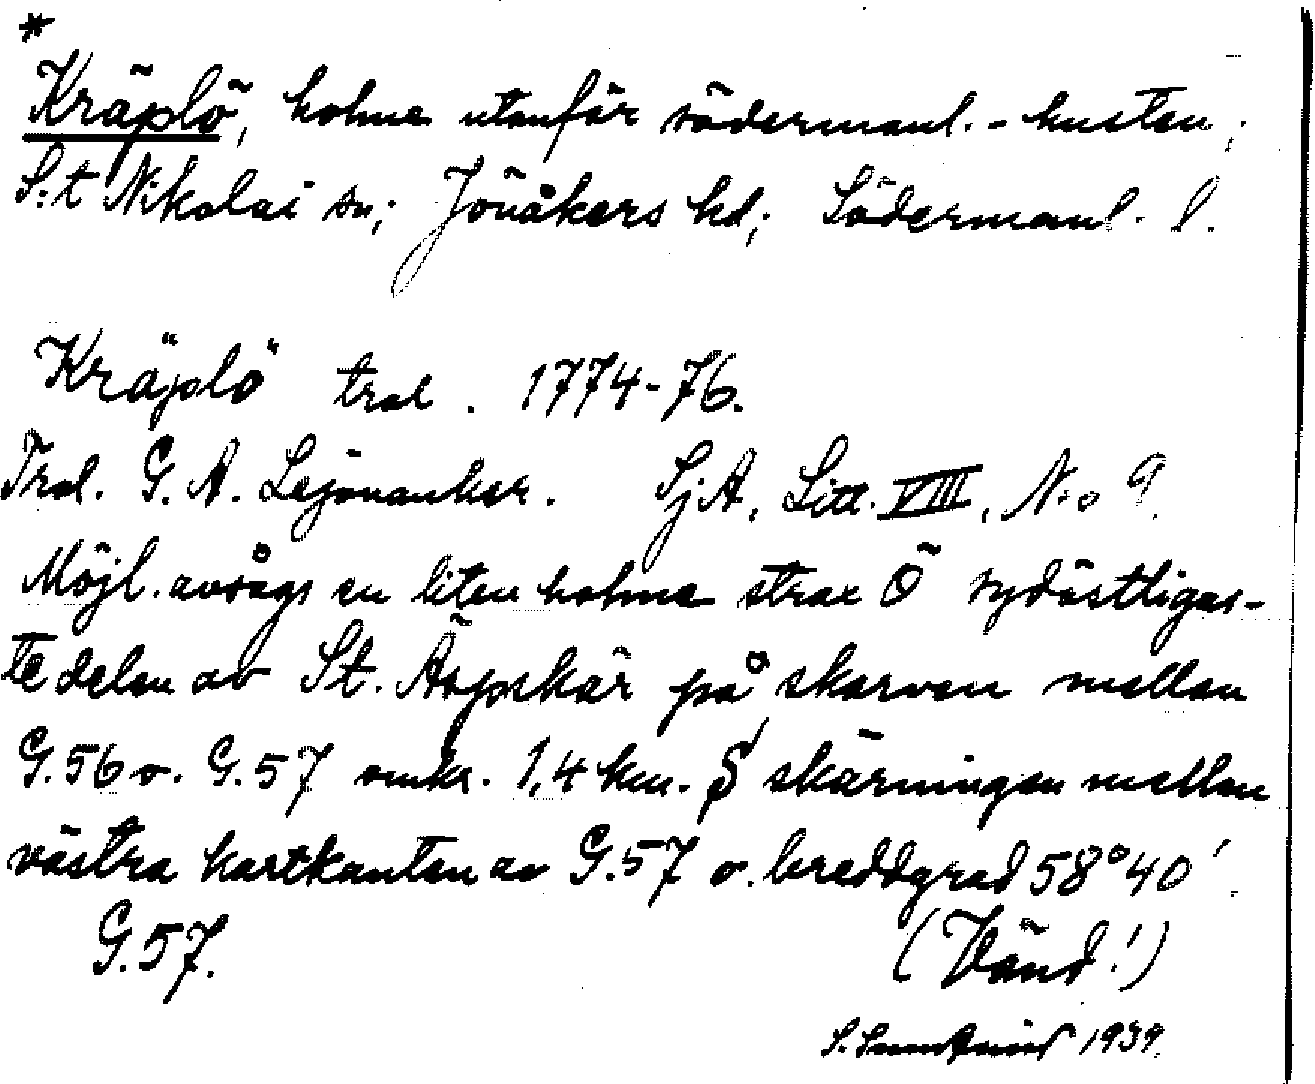 *
Kräplö, holme utanför södermanl.-kusten;
S:t Nikolai sn; Jönåkers hd; Södermanl. l.
Kräplö trol. 1774-76.
Trol. G. A. Lejonanker. SjA, Litt. VIII, No 9.
Möjl. avsågs en liten holme strax Ö sydöstligas-
te delen av St. Äspskär på skarven mellan
G.56 o. G.57 omkr. 1,4 km. S skärningen mellan
västra kartkanten av G.57 o. breddgrad 58°40'.
G.57. (Vänd!)
S. 1939.